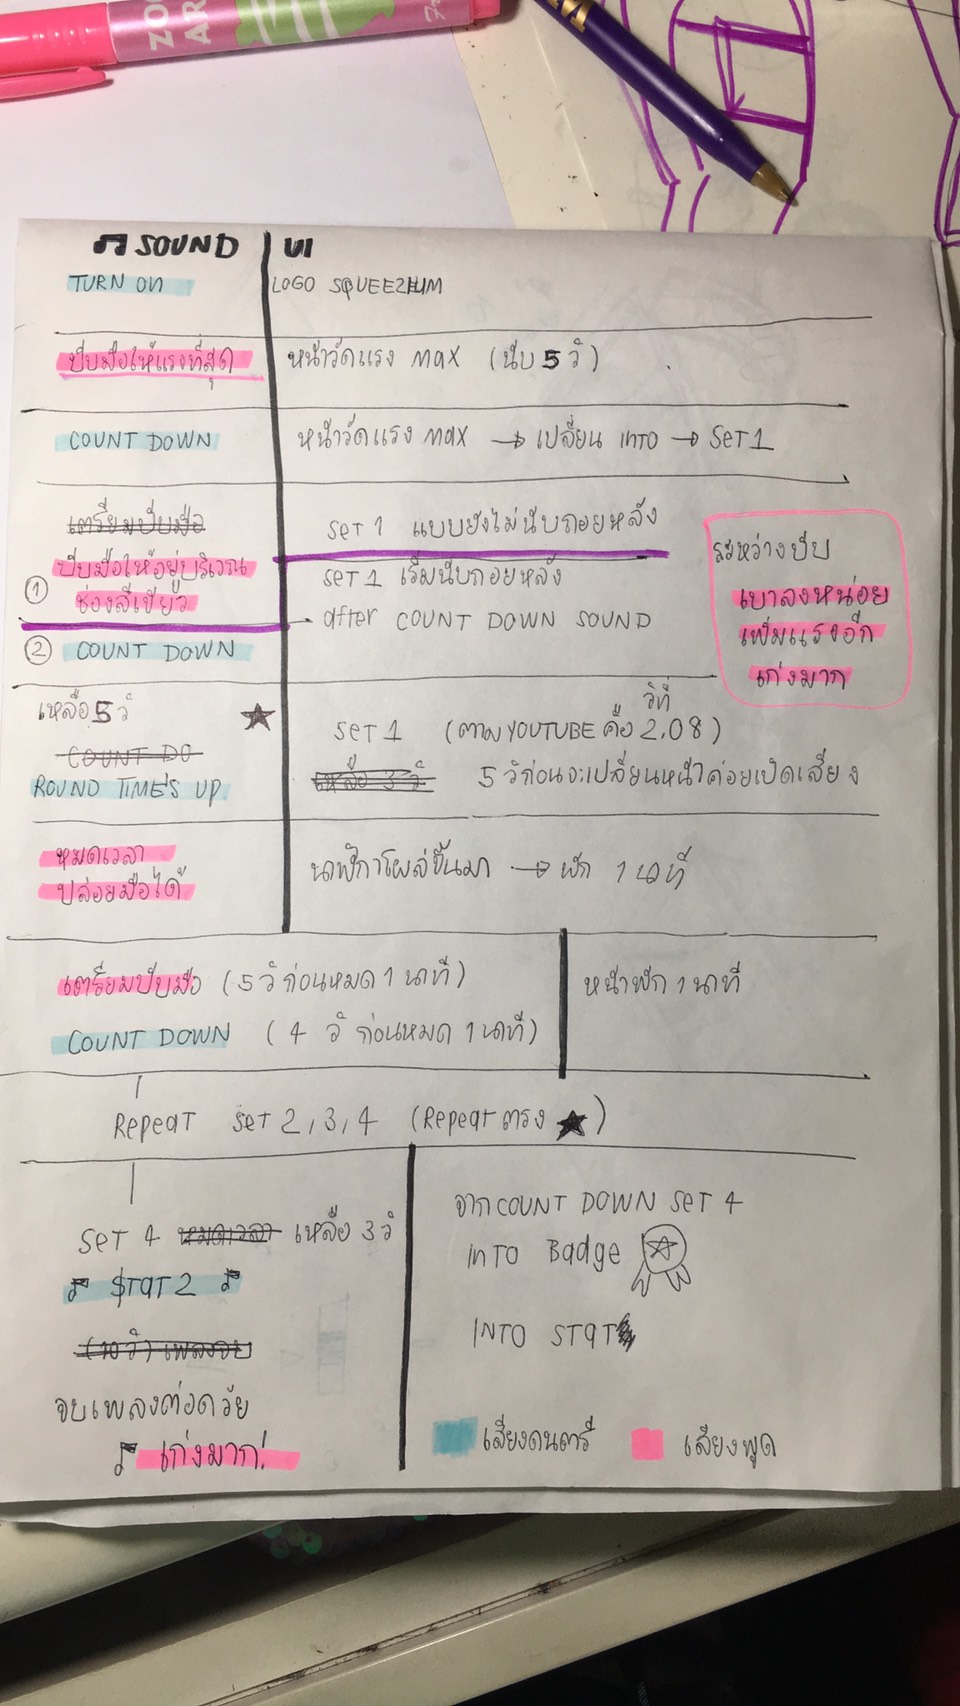 ZO
AR
♫ SOUND | UI
TURN ON
LOGO SQUEEZIUM
บีบมือให้แรงที่สุด
หน้าวัดแรง MAX (นับ 5 วิ)
COUNT DOWN
หน้าวัดแรง MAX → เปลี่ยน INTO → SET 1
เตรียมบีบมือ
SET 1 แบบยังไม่นับถอยหลัง
① บีบมือให้อยู่บริเวณ
ช่องสีเขียว
SET 1 เริ่มนับถอยหลัง
after COUNT DOWN SOUND
② COUNT DOWN
ระหว่างบีบ
เบาลงหน่อย
เพิ่มแรงอีก
เก่งมาก
เหลือ 5 วิ ★
COUNT DO
ROUND TIME'S UP
วิที่
SET 1 (ตาม YOUTUBE คือ 2.08)
เหลือ 3 วิ 5 วิก่อนจะเปลี่ยนหน้าค่อยเปิดเสียง
หมดเวลา
ปล่อยมือได้
นาฬิกาโผล่ขึ้นมา → พัก 1 นาที
เตรียมบีบมือ (5 วิ ก่อนหมด 1 นาที)
COUNT DOWN (4 วิ ก่อนหมด 1 นาที)
หน้าพัก 1 นาที
Repeat SET 2,3,4 (Repeat ตรง ★)
SET 4 หมดเวลา เหลือ 3 วิ
♫ STAT 2 ♫
(10 วิ) เพลงจบ
จบเพลงต่อด้วย
♫ เก่งมาก!
จาก COUNT DOWN SET 4
INTO Badge
INTO STAT
เสียงดนตรี
เสียงพูด